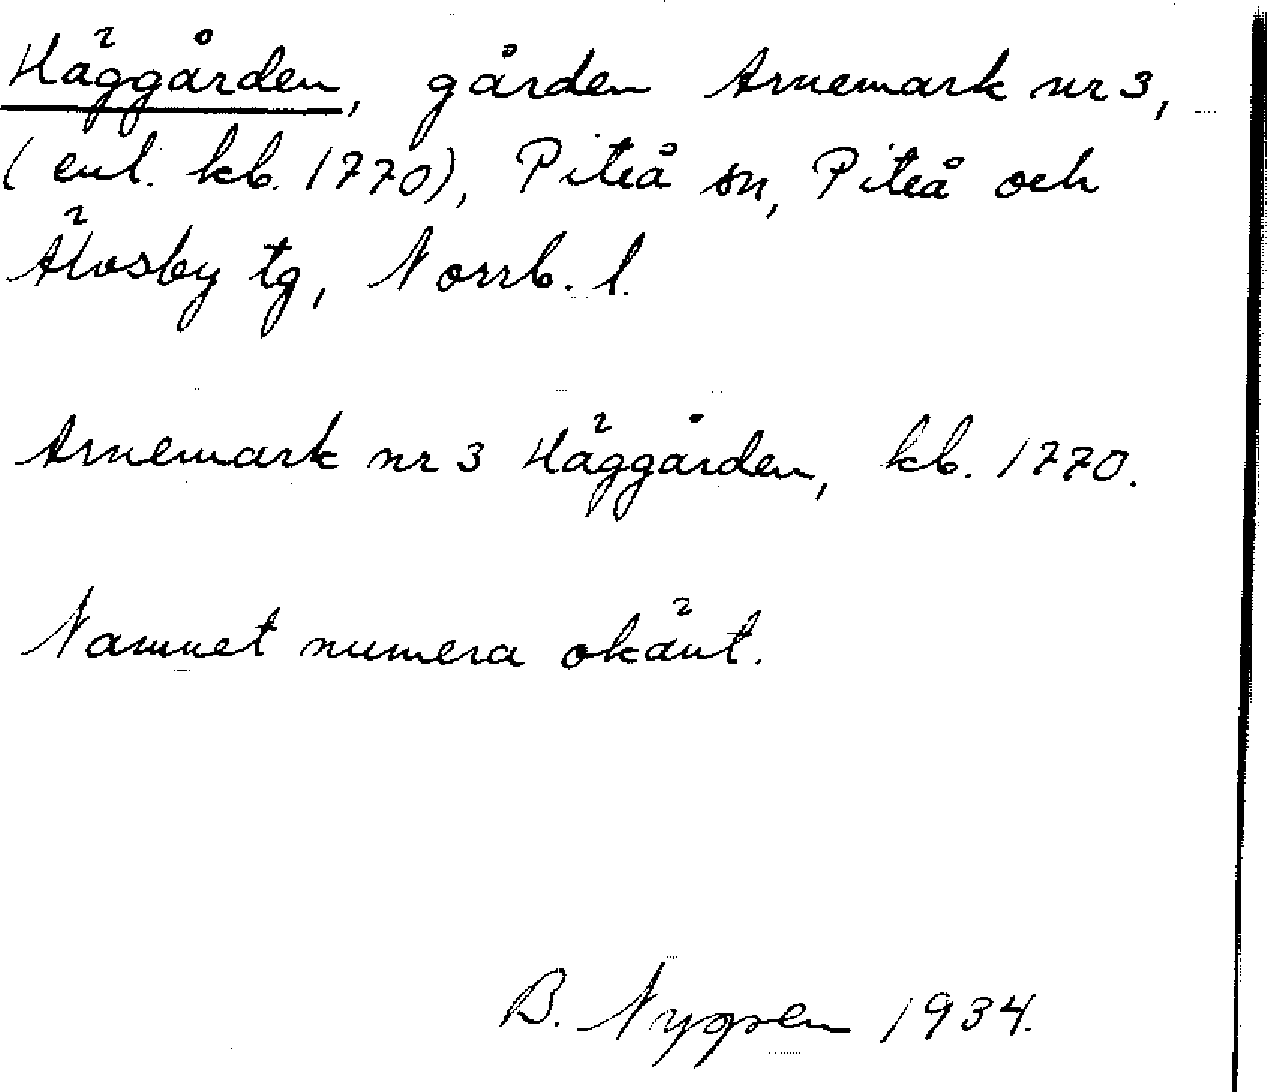 Häggården, gården Arnemark nr 3,
(enl. kb. 1770), Piteå sn, Piteå och
Älvsby tg, Norrb. l.
Arnemark nr 3 Häggården, kb. 1770.
Namnet numera okänt.
B. Nygren 1934.